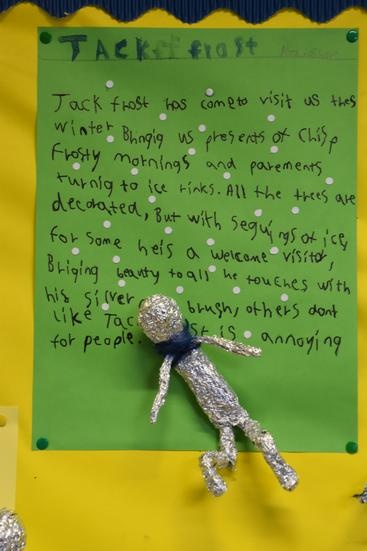 Jack frost
Jack frost has come to visit us thes
winter Bhngig us presents of Chisp
frosty mornings and parements
turnig to ice rinks. All the trees are
decorated, But with seguings of ice,
for some he is a welcome visitor,
Briging beauty to all he touches with
his silver brush, others dont
like Jac st is annoying
for people.